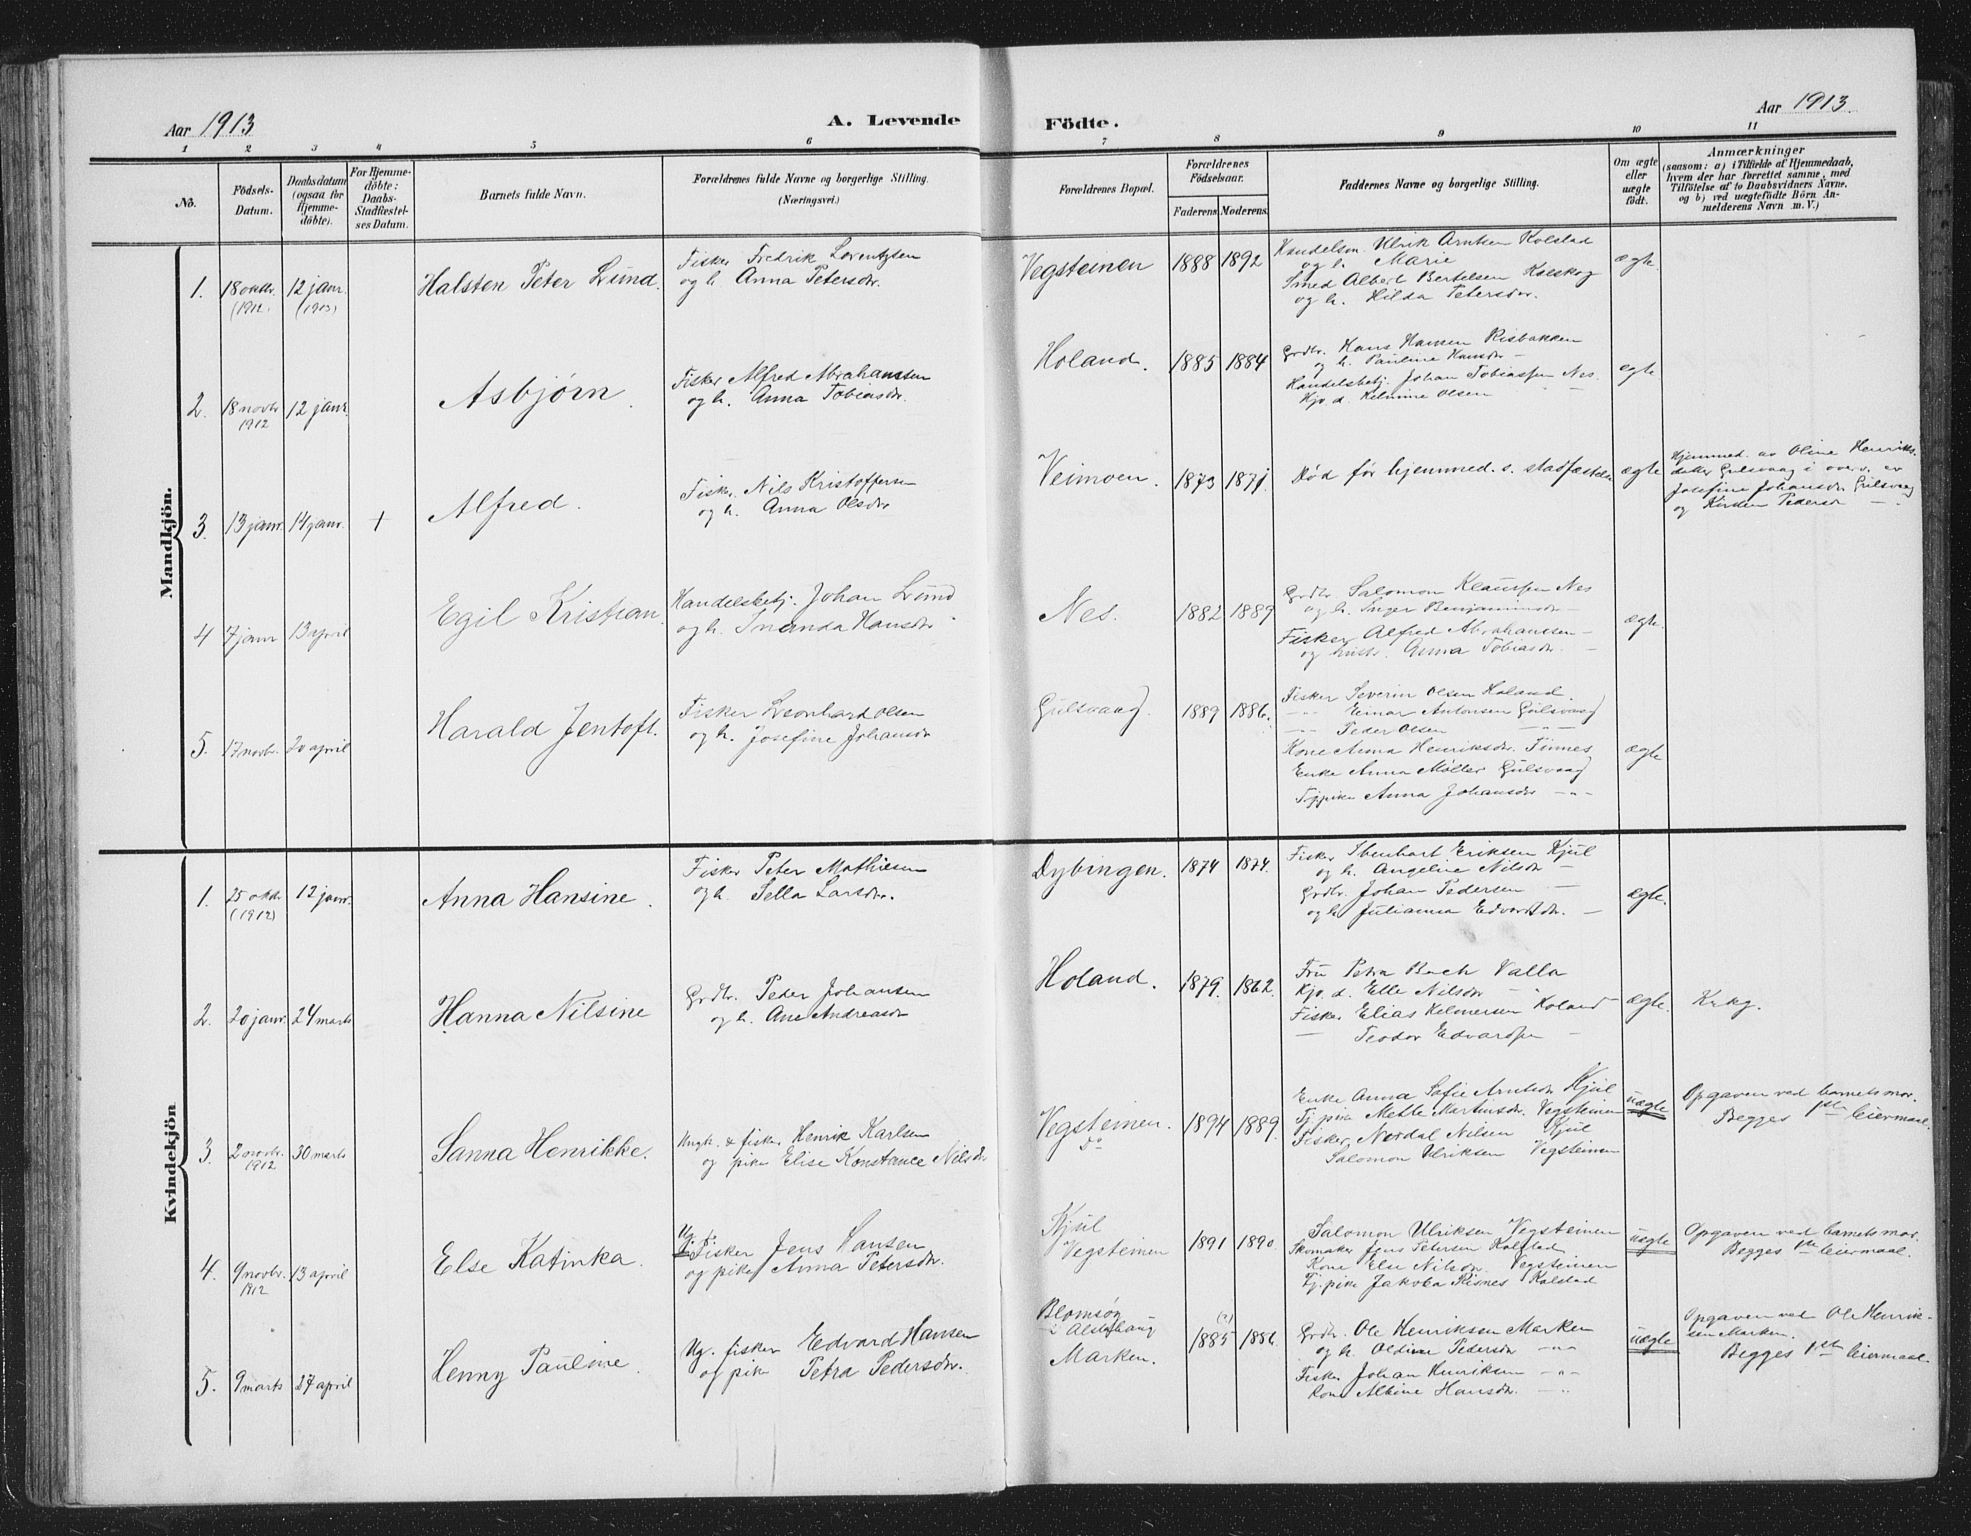 Aar 1913
A. Levende
Födte.
Aar 1913
1 2 3 4 5 6 7 8 9 10 11
No.
Födsels-
Datum.
Daabsdatum
(ogsaa for
Hjemme-
döbte).
For Hjemme-
döbte:
Daabs-
Stadfæstel-
ses Datum.
Barnets fulde Navn.
Forældrenes fulde Navne og borgerlige Stilling.
(Næringsvei.)
Forældrenes Bopæl.
Forældrenes
Födselsaar.
Faderens
Moderens.
Faddernes Navne og borgerlige Stilling.
Om ægte
eller
uægte
födt.
Anmærkninger
(saasom: a) i Tilfælde af Hjemmedaab,
hvem der har forrettet samme, med
Tilföielse af to Daabsvidners Navne,
og b) ved uægtefödte Börn An-
melderens Navn m. V.)
Mandkjön.
1. 18 oktbr. (1912) 12 janr. (1913) Halsten Peter Lund.
Fisker Fredrik Lorentzsen
og h. Anna Petersdr.
Vegsteinen 1888 1892
Handelsm. Ulrik Arntsen Kolstad
og h. Marie
Smed Albert Bertelsen Kalskog
og h. Hilda Petersdr.
ægte.
2. 18 novbr 1912 12 janr. Asbjørn.
Fisker Alfred Abrahamsen
og h. Anna Tobiasdr.
Holand. 1885 1884
Grdbr. Hans Hansen Risbakken
og h. Pauline Hansdr. —
Handelsbetj. Johan Tobiassen Nes.
Kjø. d. Helmine Olsen —
ægte
3. 13 janr. 14 janr. + Alfred.
Fisker Nils Kristoffersen
og h. Anna Olsdr
Veimoen. 1873 1871.
Død før hjemmed. s. stadfæstelse
ægte
Hjemmed. av Oline Henriks-
datter Gulsvaag i overv. av
Josefine Johansdr. Gulsvaag
og Kirsten Pedersdr — .
4 7 janr 13 april Egil Kristian.
Handelsbetj. Johan Lund
og h. Inanda Hansdr
Nes. 1882 1889
Grdbr. Salomon Klaussen Nes
og h. Inger Benjaminsdr —
Fisker Alfred Abrahamsen —
og hustr. Anna Tobiasdr. —
ægte.
5. 17 novbr. 20 april Harald Jentoft.
Fisker Leonhard Olsen
og h. Josefine Johansdr
Gulsvaag. 1889 1886.
Fisker Severin Olsen Holand.
—"— Einar Antonsen Gulsvaag
—"— Peder Olsen —"—
Kone Anna Henriksdr. Finnes
Enke Anna Møller Gulsvaag
Tj.pike Anna Johansdr —"—
ægte
Kvindekjön
1. 25 oktbr (1912) 12 janr. Anna Hansine.
Fisker Peter Mathisen
og h. Sella Larsdr.
Dybingen. 1874 1874.
Fisker Ebenhart Eriksen Kjul
og h. Angeline Nilsdr —
Grdbr. Johan Pedersen —
og h. Julianna Edvardsdr. —
ægte.
2. 20 janr. 24 marts Hanna Nilsine
Grdbr. Peder Johansen
og h. Ane Andreasdr
Holand. 1879. 1862.
Fru Petra Bech Valla
Kjø. d. Elle Nilsdr —"
Fisker Elias Helmersen Holand
— Teodor Edvardsen —
ægte.
Krkg.
3. 2 novbr. 1912 30 marts Sanna Henrikke.
Ungk. & fisk. Henrik Karlsen
og pike Elise Konstance Nilsdr
Vegsteinen. 1894 1889.
Do
Enke Anna Sofie Arntsdr Kjul
Tj.pike Mette Martinsdr. Vegsteinen
Fisker Nordal Nilsen Kjul
Salomon Ulriksen Vegsteinen
uægte
Opgaven ved barnets mor.
Begges 1ste leiermaal.
4. 9 novbr. 1912 13 april Else Katinka.
Ug. f.
Fisker Jens Hansen
og pike Anna Petersdr.
Kjul
Vegsteinen 1891 1890.
Salomon Ulriksen Vegsteinen
Skomaker Jens Petersen Kolstad
Kone Else Nilsdr. Vegsteinen
Tj.pike Jakoba Risnes Kolstad
uægte
Opgaven ved barnets mor.
Begges 1ste leiermaal.
5. 9 marts 27 april Henny Pauline.
Ug. fisker Edvard Hansen
og pike Petra Pedersdr.
Blomsøy
i Alstahaug
Marken. (?) 1885 1886
Grdbr. Ole Henriksen Marken
og h. Oldine Pedersdr —"—
Fisker Johan Henriksen —"—
Kone Albine Hansdr. —"—
uægte
Opgaven ved Ole Henrik-
sen Marken.
Begges 1ste leiermaal.